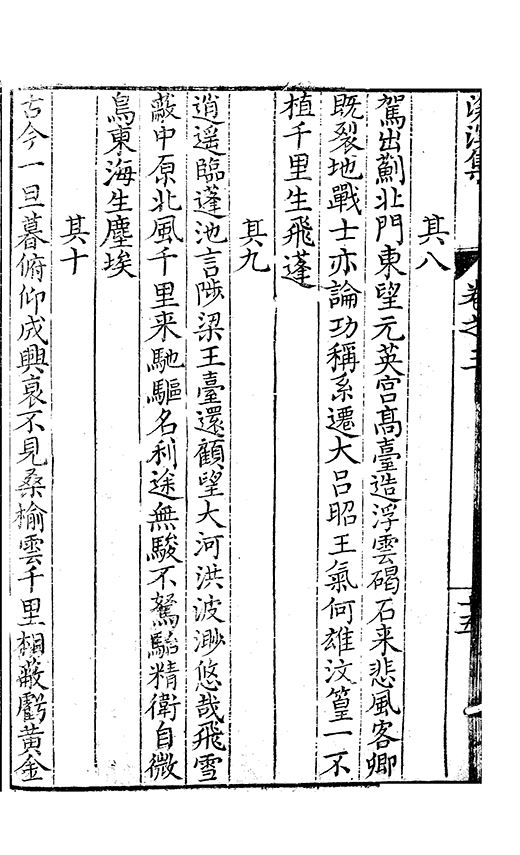 漢集
卷之三
十五
其八
駕出薊北門東望元英宮髙臺造浮雲碣石来悲風客卿
既裂地戰士亦論功稱系遷大呂昭王氣何雄汶篁一不
植千里生飛蓬
其九
逍遥臨蓬池言陟梁王臺還顧望大河洪波渺悠哉飛雪
蔽中原北風千里来馳驅名利途無駿不駑駘精衛自微
鳥東海生塵埃
其十
古今一旦暮俯仰成興衰不見桑榆雲千里相蔽虧黄金